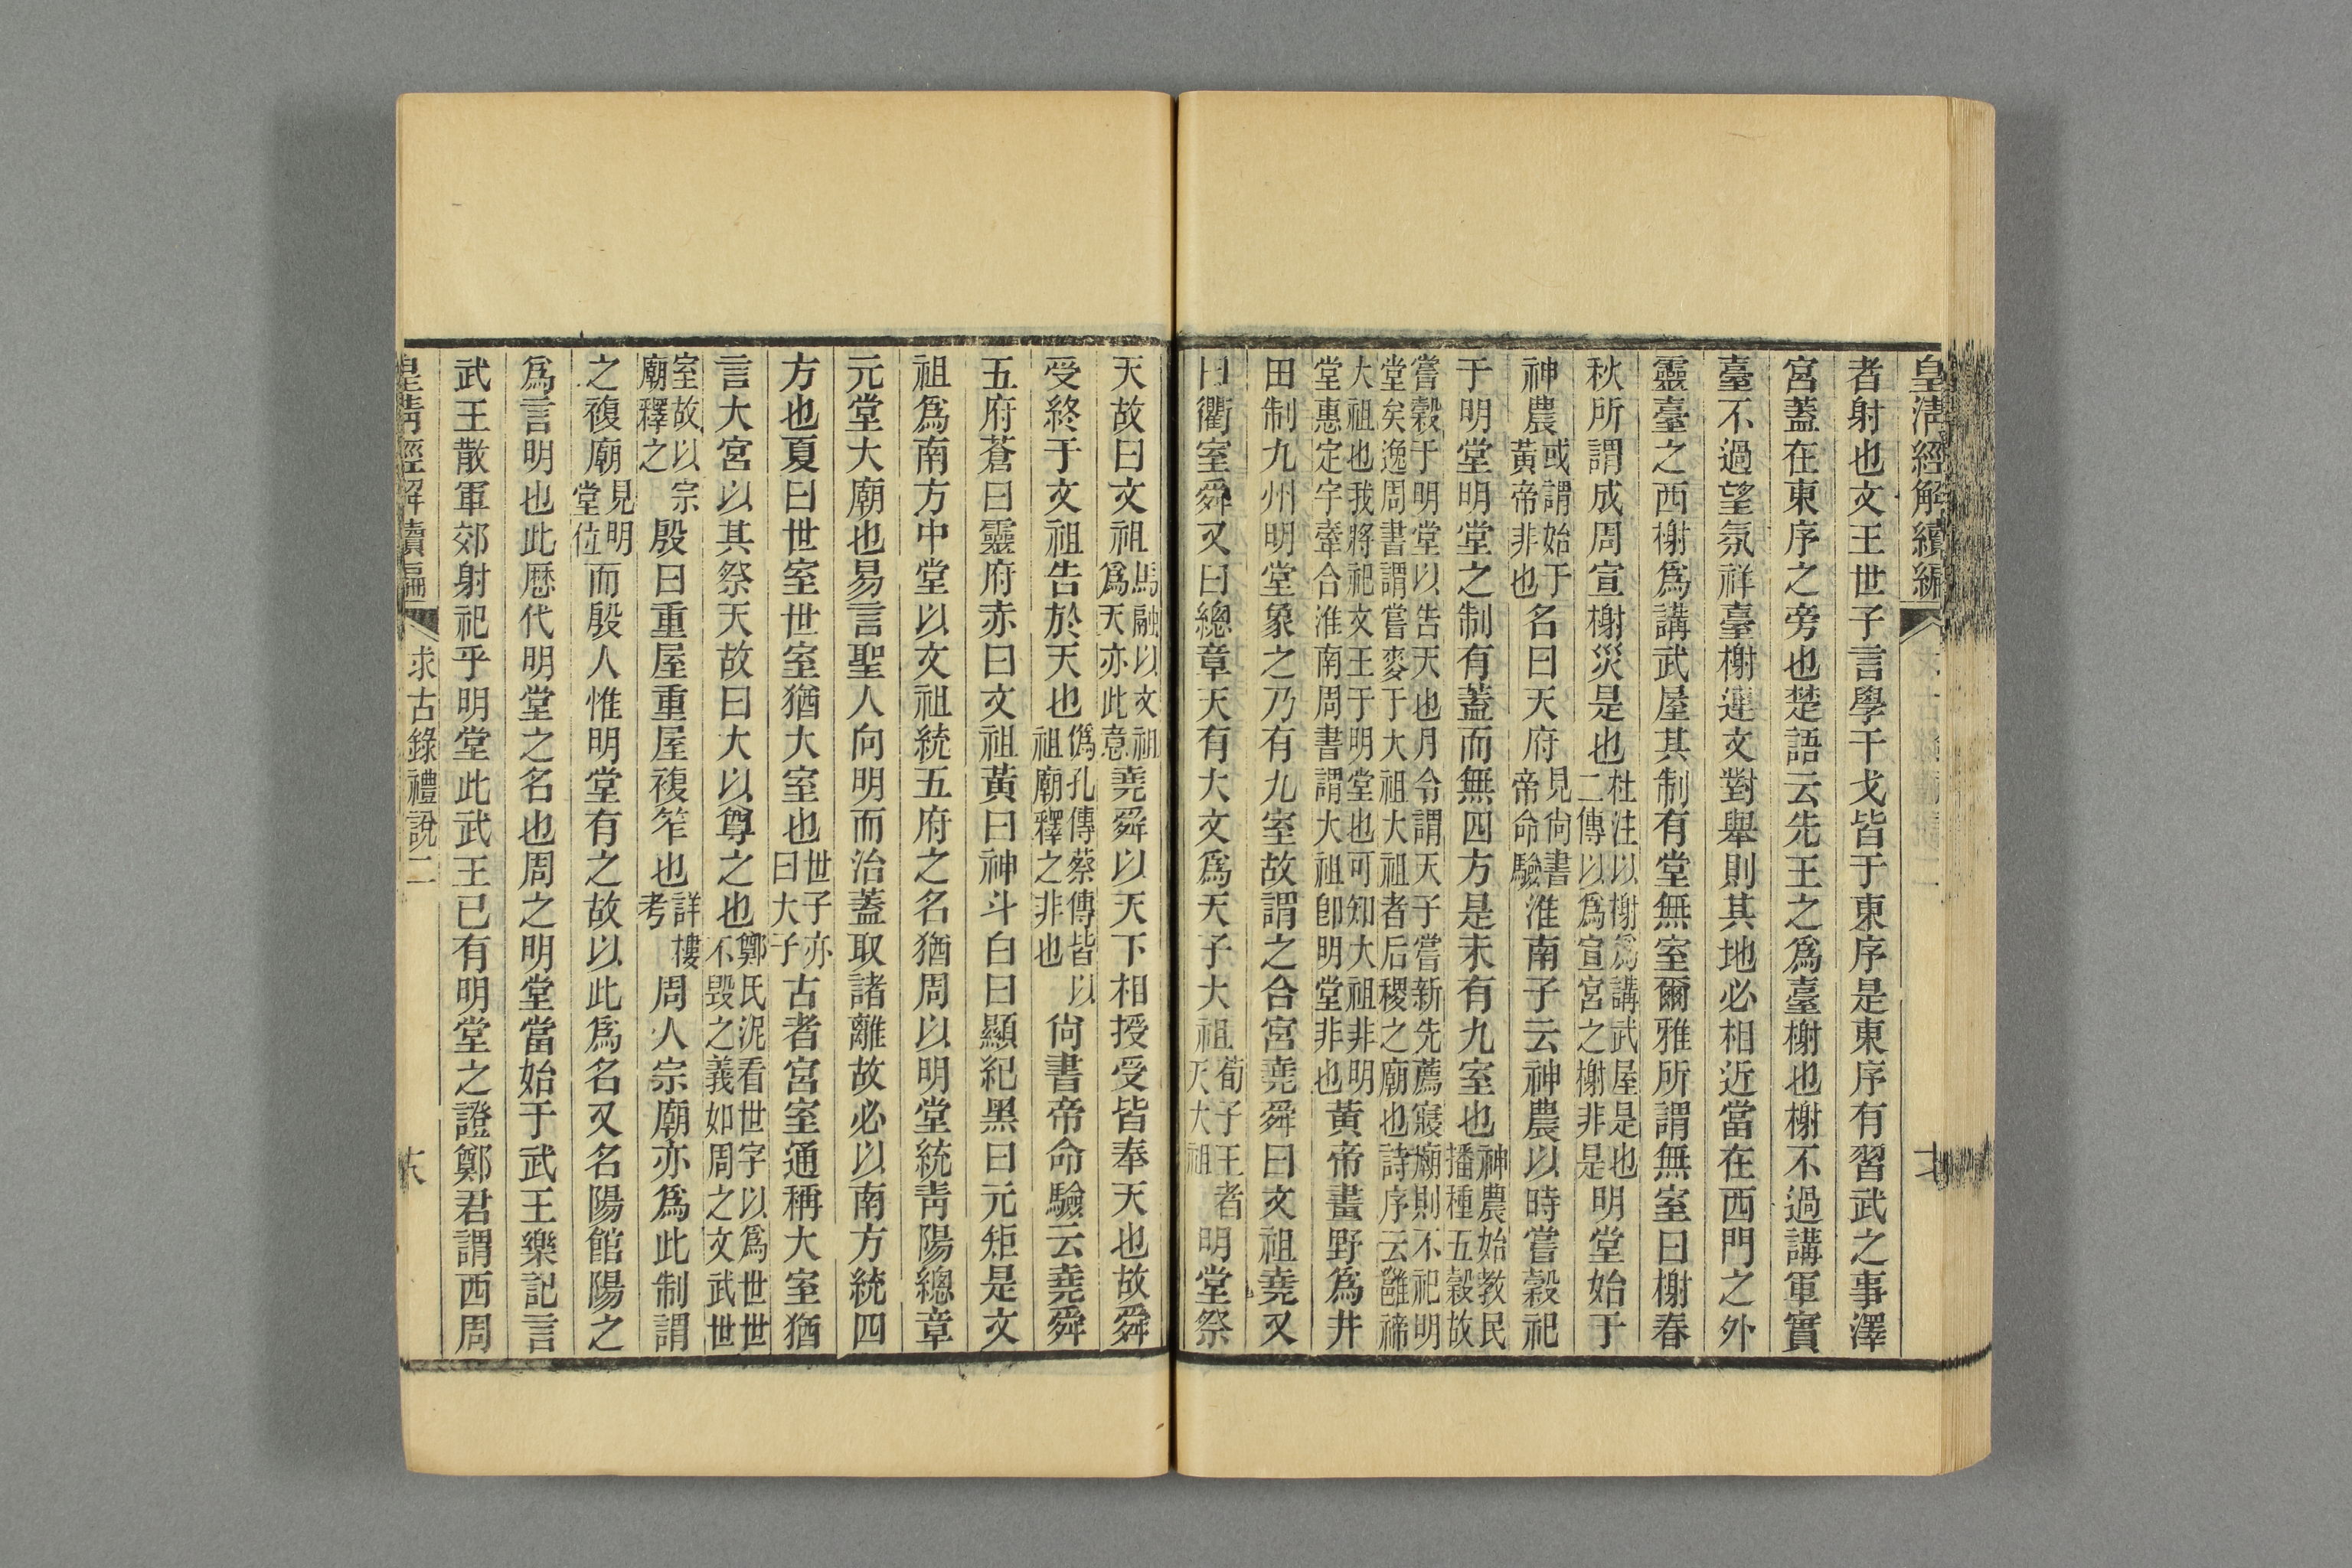 皇清經解續編
七
者射也文王世子言學干戈皆于東序是東序有習武之事澤
宮蓋在東序之旁也楚語云先王之爲臺榭也榭不過講軍實
臺不過望氛祥臺榭連文對舉則其地必相近當在西門之外
靈臺之西榭爲講武屋其制有堂無室爾雅所謂無室曰榭春
秋所謂成周宣榭災是也杜注以榭爲講武屋是也二傳以爲宣宮之榭非是明堂始于
神農或謂始于黃帝非也名曰天府見尙書帝命驗淮南子云神農以時嘗穀祀
于明堂明堂之制有蓋而無四方是未有九室也神農始教民播種五穀故
嘗穀于明堂以告天也月令謂天子嘗新先薦寢廟則不祀明堂矣逸周書謂嘗麥于大祖大祖者后稷之廟也詩序云雝禘
大祖也我將祀文王于明堂也可知大祖非明堂惠定宇牽合淮南周書謂大祖卽明堂非也黃帝畫野爲井
田制九州明堂象之乃有九室故謂之合宮堯舜曰文祖堯又
曰衢室舜又曰總章天有大文爲天子大祖荀子王者天大祖明堂祭
天故曰文祖馬融以文祖爲天亦此意堯舜以天下相授受皆奉天也故舜
受終于文祖告於天也僞孔傳蔡傳皆以祖廟釋之非也尙書帝命驗云堯舜
五府蒼曰靈府赤曰文祖黃曰神斗白曰顯紀黑曰元矩是文
祖爲南方中堂以文祖統五府之名猶周以明堂統靑陽總章
元堂大廟也易言聖人向明而治蓋取諸離故必以南方統四
方也夏曰世室世室猶大室也世子亦曰大子古者宮室通稱大室猶
言大宮以其祭天故曰大以尊之也鄭氏泥看世字以爲世世不毀之義如周之文武世
室故以宗廟釋之殷曰重屋重屋複笮也詳樓考周人宗廟亦爲此制謂
之複廟見明堂位而殷人惟明堂有之故以此爲名又名陽館陽之
爲言明也此歷代明堂之名也周之明堂當始于武王樂記言
武王散軍郊射祀乎明堂此武王已有明堂之證鄭君謂西周
皇清經解續編
求古錄禮說二
六